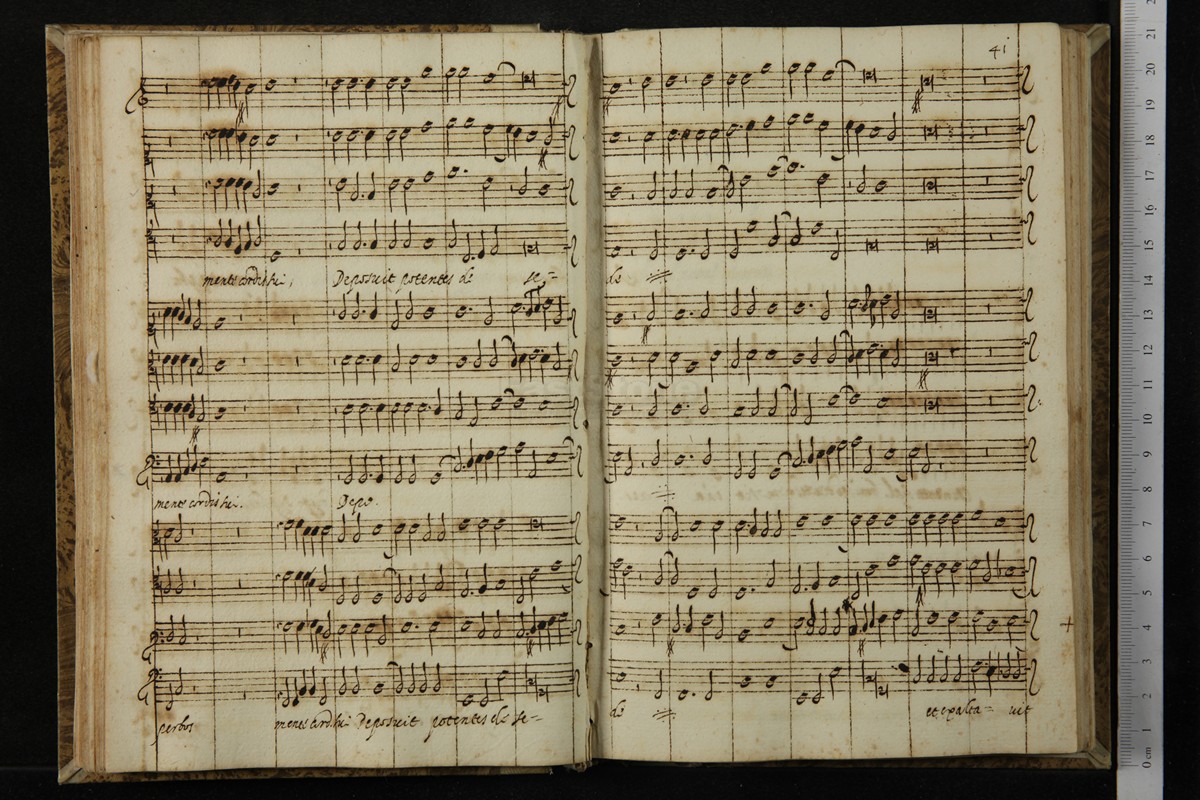 41
mente cordis sui, Deposuit potentes de se=
de
mente cordis sui. Depo.
perbos mente cordis sui Deposuit potentes de se=
de et exalta= uit
0 cm 1 2 3 4 5 6 7 8 9 10 11 12 13 14 15 16 17 18 19 20 21